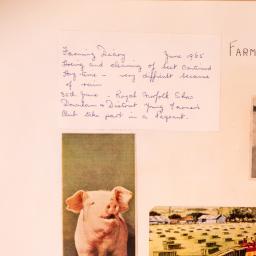 Farming Diary June 1985
Hoeing and cleaning of beet continued
Hay time - very difficult because
of rain
30th June - Royal Norfolk Show
Downham & District Young Farmers
Club take part in a Pageant.
FARM